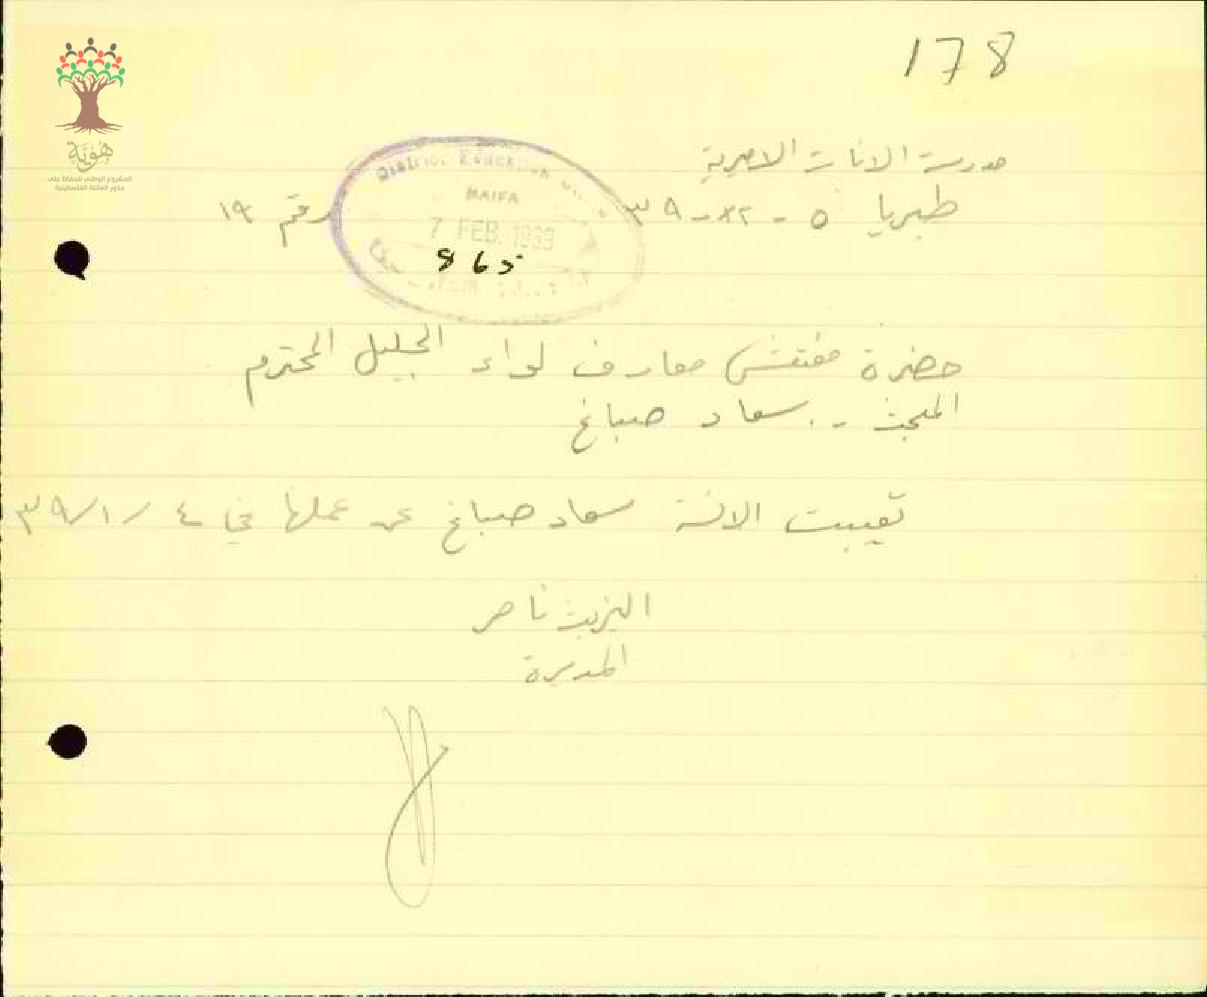 178
هوية
المشروع الوطني للحفاظ على
جذور العائلة الفلسطينية
مدرسة الاناث الاميرية
طبريا ٥ - ٢ - ٣٩
رقم ١٩
DISTRICT EDUCATION
HAIFA
7 FEB. 1939
865
حضرة مفتش معارف لواء الجليل المحترم
المبحث - . سعاد صباغ
تغيبت الانسة سعاد صباغ عن عملها في ٤ / ١ / ٣٩
اليزبث ناصر
المديرة